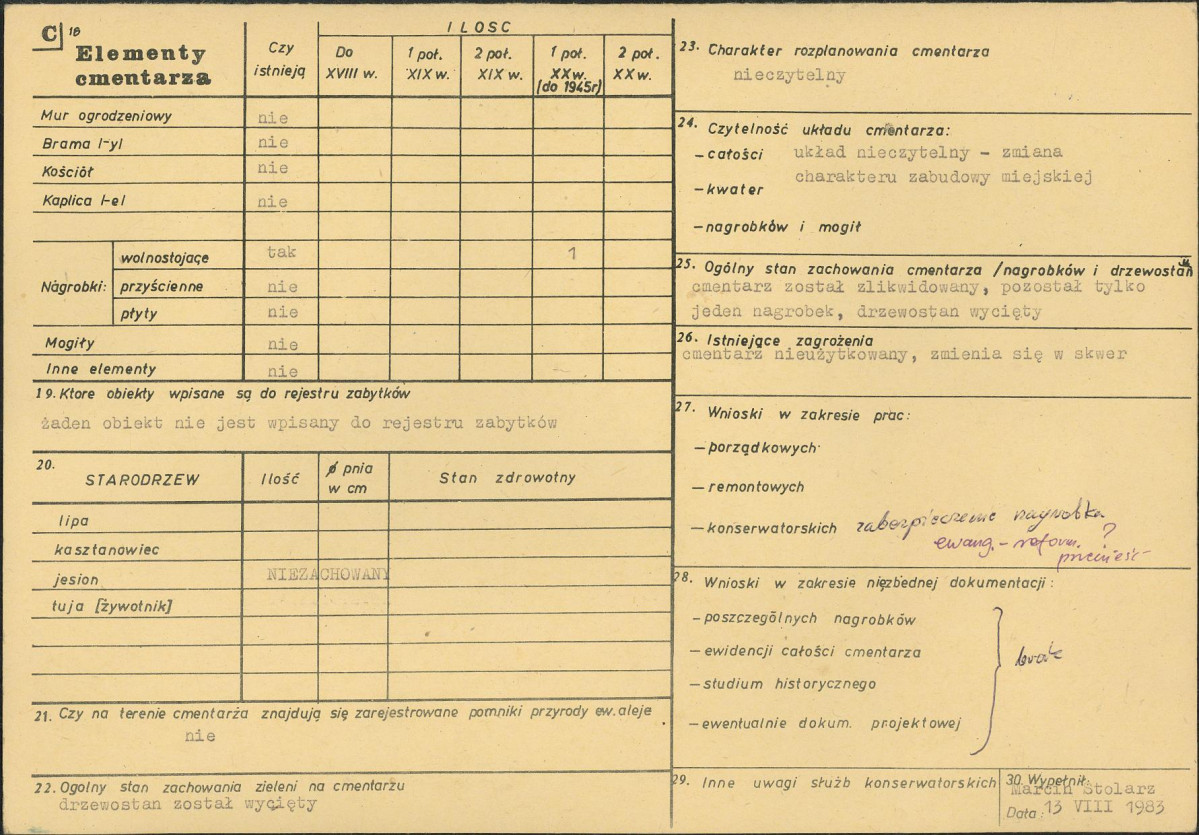 C 18
Elementy
cmentarza
Czy
istnieją
ILOSC
Do
XVIII w.
1 poł.
XIX w.
2 poł.
XIX w.
1 poł.
XX w.
(do 1945r)
2 poł.
XX w.
Mur ogrodzeniowy nie
Brama l-yl nie
Kościół nie
Kaplica l-el nie
Nagrobki:
wolnostojące tak 1
przyścienne nie
płyty nie
Mogiły nie
Inne elementy nie
19. Ktore obiekty wpisane są do rejestru zabytków
żaden obiekt nie jest wpisany do rejestru zabytków
20.
STARODRZEW
Ilość
ø pnia
w cm
Stan zdrowotny
lipa
kasztanowiec
jesion NIEZACHOWANY
tuja [żywotnik]
21. Czy na terenie cmentarza znajdują się zarejestrowane pomniki przyrody ew. aleje
nie
22. Ogolny stan zachowania zieleni na cmentarzu
drzewostan został wycięty
23. Charakter rozplanowania cmentarza
nieczytelny
24. Czytelność układu cmentarza:
- całości układ nieczytelny - zmiana
charakteru zabudowy miejskiej
- kwater
- nagrobków i mogił
25. Ogólny stan zachowania cmentarza /nagrobków i drzewostan
cmentarz został zlikwidowany, pozostał tylko
jeden nagrobek, drzewostan wycięty
26. Istniejące zagrożenia
cmentarz nieużytkowany, zmienia się w skwer
27. Wnioski w zakresie prac:
- porządkowych
- remontowych
- konserwatorskich zabezpieczenie nagrobka
ewang.-reform. ?
przenieść
28. Wnioski w zakresie niezbednej dokumentacji:
- poszczególnych nagrobków
- ewidencji całości cmentarza
- studium historycznego
- ewentualnie dokum. projektowej
brak
29. Inne uwagi służb konserwatorskich
30. Wypełnił:
Marcin Stolarz
Data: 13 VIII 1983